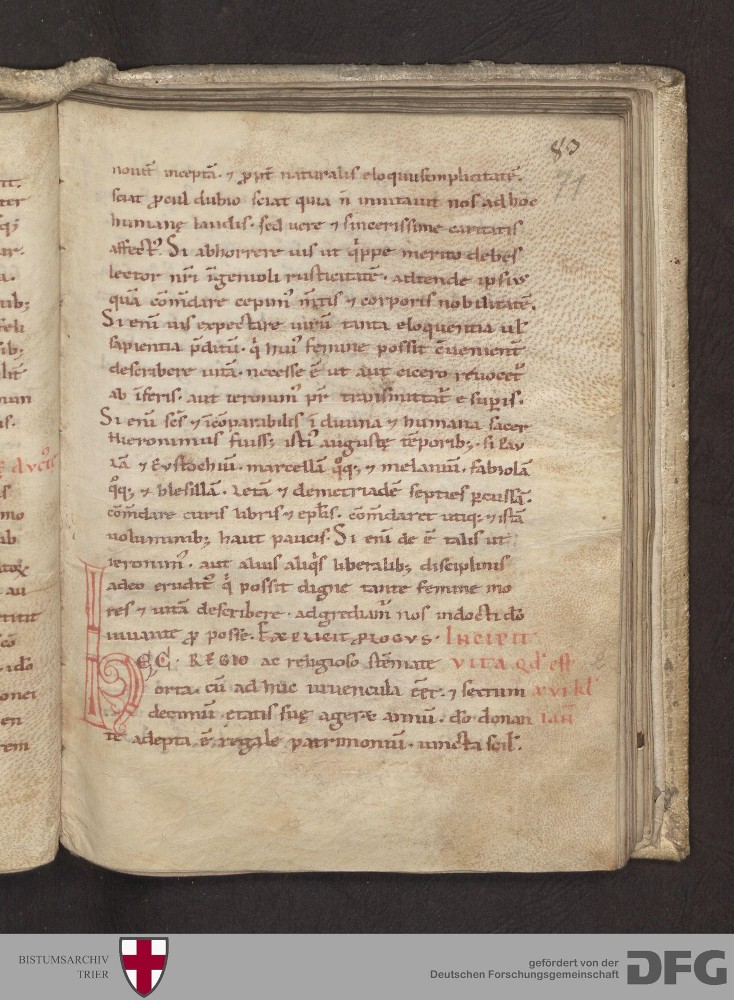 80
71
nouit incepta. ⁊ ꝓpt̄ naturalis eloquii simplicitatē.
sciat ꝓcul dubio sciat quia n̄ inuitauit nos ad hoc
humanę laudis. sed uere ⁊ sincerissime caritatis
affect᷒. Si abhorrere uis ut q̇ppe merito debes
lector nr̄i īgenioli rusticitatē. adtende ipsius
quā cōm̄dare cepim᷒ m̄tis ⁊ corporis nobilitatē.
Si eni̅ uis expectare uirū tanta eloquentia ul̄
sapientia p̄ditū. q̇ hui᷒ femine possit c̄uenient̄
describere uitā. necesse ē ut aut cicero reuocet᷑
ab īferis. aut ieronim᷒ pr̄ transmittat᷑ e supis.
Si eni̅ scs̄ ⁊ īcōparabilis ī diuina ⁊ humana sacer
Hieronimus fuiss; isti᷒ augustę tēporib;. si Pau
lā ⁊ Eustochiū. marcellā q̊q; ⁊ melaniā. fabiolā
q̊q; ⁊ blesillā. letā ⁊ demetriadē septies ꝑcussā.
cōm̄dare curis libris ⁊ epl̄is. cōm̄daret utiq; ⁊ istā
uoluminib; haut paucis. Si eni̅ de ē talis ut
ieronim᷒. aut alius aliq̇s liberalib; disciplinis
adeo erudit᷒ q̇ possit digne tante femine mo
res ⁊ uitā describere. adgrediam᷑ nos indocti dō
iuuante ꝓ posse. Explicit prologus. Incipit
HEC. REGIO ac religioso stēmate vita qd̄ est
orta. cū adhuc iuuencula eēt. ⁊ sectum xvi kl̄
decimū etatis suę ageret annū. dō donan ian̄
te adepta ē regale patrimoniū. iuncta scil.
BISTUMSARCHIV
TRIER
gefördert von der
Deutschen Forschungsgemeinschaft
DFG